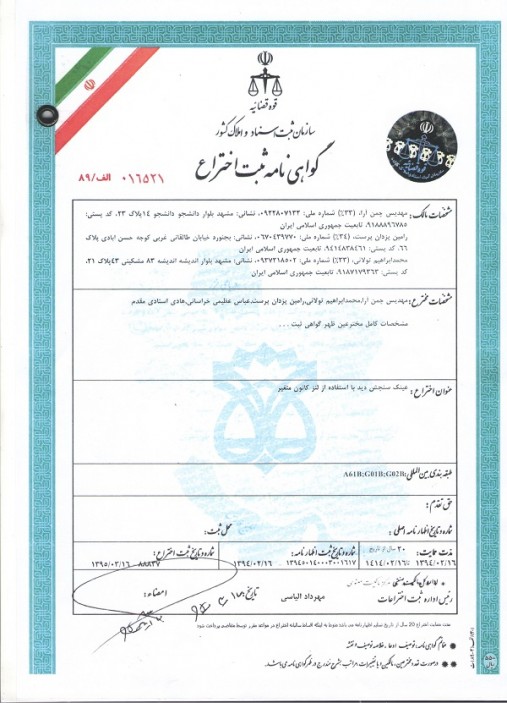 قوه قضائیه
سازمان ثبت اسناد و املاک کشور
گواهی نامه ثبت اختراع
۰۱۶۵۲۱ الف/۸۹
مشخصات مالک: مهدیس چمن آرا، (۳۳٪) شماره ملی: ۰۹۲۲۸۰۷۱۳۳، نشانی: مشهد بلوار دانشجو دانشجو ۱۴پلاک ۲۳، کد پستی:
۹۱۸۸۸۹۶۷۸۵ تابعیت جمهوری اسلامی ایران
رامین یزدان پرست، (۳۴٪) شماره ملی: ۰۶۷۰۴۳۹۷۷۰، نشانی: بجنورد خیابان طالقانی غربی کوچه حسن ابادی پلاک
۶۶، کد پستی: ۹۴۱۴۸۳۸۴۶۱ تابعیت جمهوری اسلامی ایران
محمدابراهیم تولائی، (۳۳٪) شماره ملی: ۰۹۳۷۲۱۸۵۰۲، نشانی: مشهد بلوار اندیشه اندیشه ۸۳ مشکینی ۴۳پلاک ۲۱،
کد پستی: ۹۱۸۷۱۷۹۳۶۳ تابعیت جمهوری اسلامی ایران
مشخصات مخترع: مهدیس چمن آرا،محمدابراهیم تولائی،رامین یزدان پرست،عباس عظیمی خراسانی،هادی استادی مقدم
مشخصات کامل مخترعین ظهر گواهی ثبت ...
عنوان اختراع: عینک سنجش دید با استفاده از لنز کانون متغیر
طبقه بندی بین المللی: A61B;G01B;G02B
حق تقدم:
شماره و تاریخ اظهارنامه اصلی: محل ثبت:
مدت حمایت: ۲۰ سال از تاریخ شماره و تاریخ ثبت اظهارنامه: شماره و تاریخ ثبت اختراع:
۱۳۹۴/۰۲/۱۶ تا ۱۴۱۴/۰۲/۱۶ ۱۳۹۴۵۰۱۴۰۰۰۳۰۰۱۶۱۷ ۱۳۹۴/۰۲/۱۶ ۸۸۸۳۷ ۱۳۹۵/۰۲/۱۶
رئیس اداره ثبت اختراعات مهرداد الیاسی تاریخ: امضاء:
مدت حمایت اختراع 20 سال از تاریخ تسلیم اظهارنامه می باشد منوط به اینکه اقساط سالیانه اختراع در مواعد مقرر توسط متقاضی پرداخت شود
ضمائم گواهی نامه: توصیف، ادعا، خلاصه توصیف، نقشه